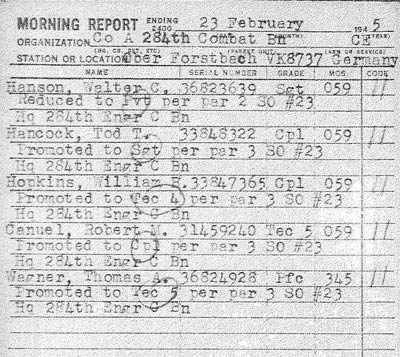 MORNING REPORT ENDING 2400 23 February 1945
ORGANIZATION Co A 284th Combat Bn CE
STATION OR LOCATION Ober Forstbach VK8737 Germany
NAME SERIAL NUMBER GRADE MOS CODE
Hanson, Walter C. 36823639 Sgt 059 11
Reduced to Pvt per par 2 SO #23
Hq 284th Engr C Bn
Hancock, Tod T. 33848322 Cpl 059 11
Promoted to Sgt per par 3 SO #23
Hq 284th Engr C Bn
Hopkins, William R. 33847365 Cpl 059 11
Promoted to Tec 4 per par 3 SO #23
Hq 284th Engr C Bn
Canuel, Robert M. 31459240 Tec 5 059 11
Promoted to Cpl per par 3 SO #23
Hq 284th Engr C Bn
Wagner, Thomas A. 36824928 Pfc 345 11
Promoted to Tec 5 per par 3 SO #23
Hq 284th Engr C Bn